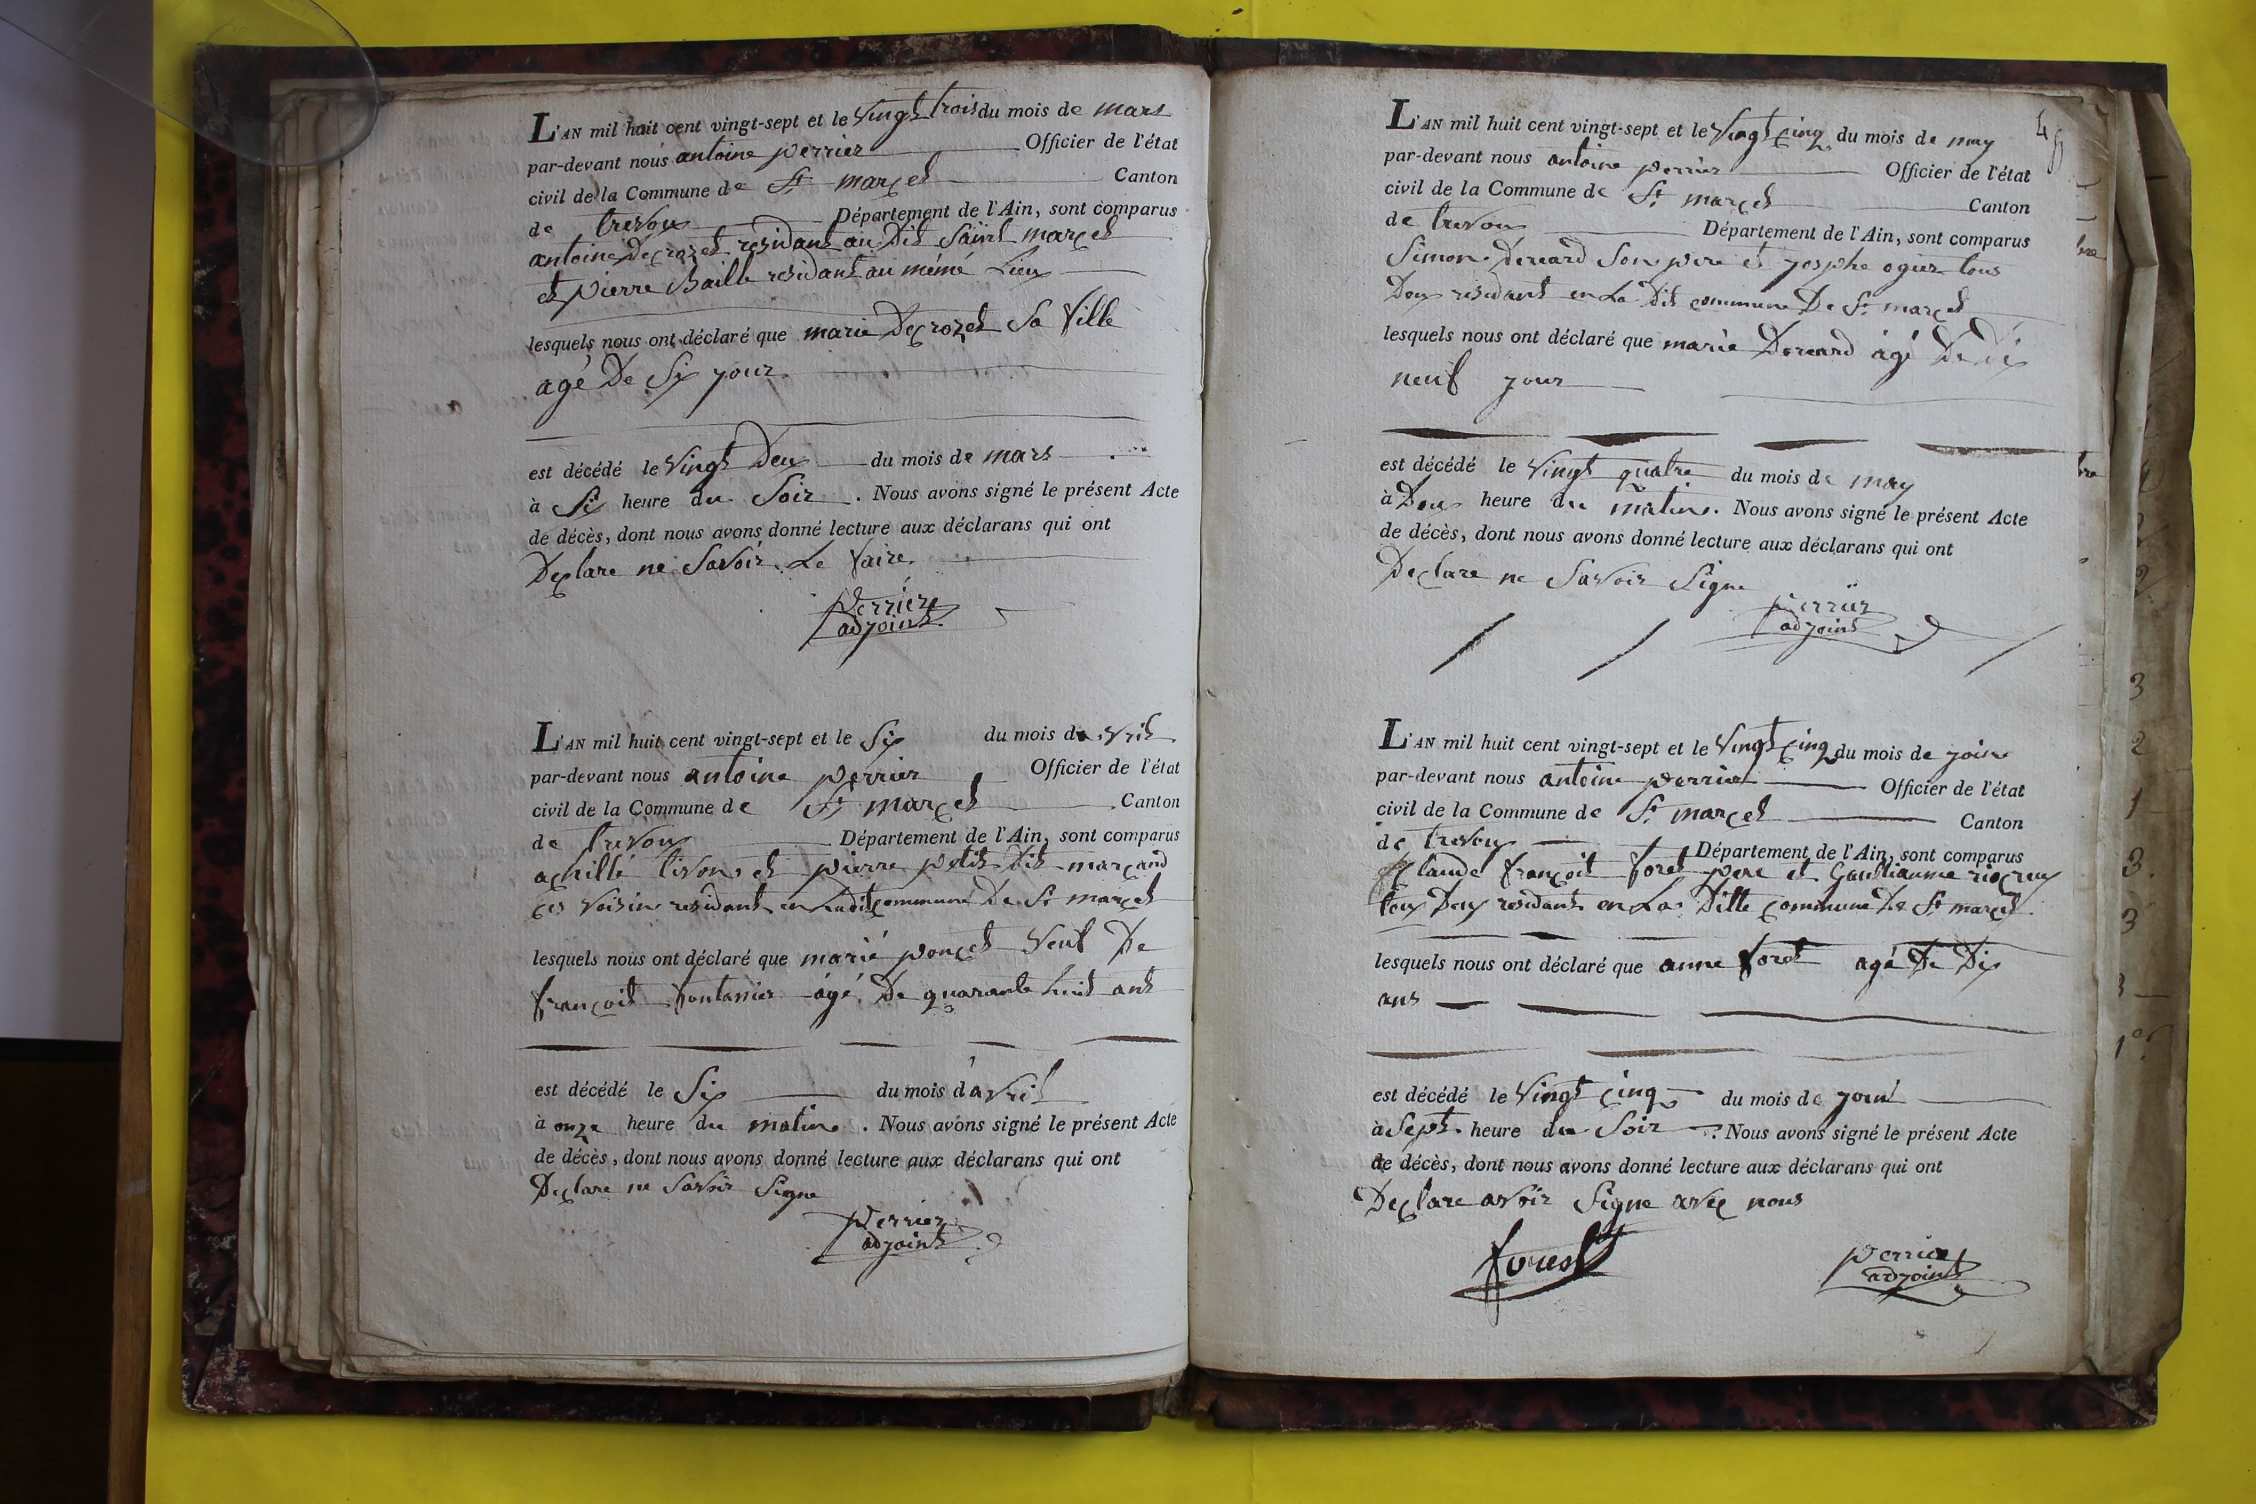 L'AN mil huit cent vingt-sept et le vingt trois du mois de mars
par-devant nous antoine perrier Officier de l'état
civil de la Commune de St marcel Canton
de trevou Département de l'Ain, sont comparus
antoine Decrozet residant au Dit Saint marcel
et pierre Baille residant au mémé Lieu
lesquels nous ont déclaré que marie Decrozet Sa fille
agé De Six jour
est décédé le vingt Deux du mois de mars
à Six heure du Soir. Nous avons signé le présent Acte
de décès, dont nous avons donné lecture aux déclarans qui ont
Declare ne Savoir Le faire
perrier
adjoint
L'AN mil huit cent vingt-sept et le Six du mois de avril
par-devant nous antoine perrier Officier de l'état
civil de la Commune de St marcel Canton
de trevoux Département de l'Ain, sont comparus
achille tivon et pierre petit Dit marcand
ces voisin residant en Ladit commune De St marcel
lesquels nous ont déclaré que marié poncet veuf De
françoit fontanier agé De quarante huit ant
est décédé le Six du mois d'avril
à onze heure du matin. Nous avons signé le présent Acte
de décès, dont nous avons donné lecture aux déclarans qui ont
Declare ne Savoir Signe
perrier
adjoint
L'AN mil huit cent vingt-sept et le vingt cinq du mois de may
par-devant nous antoine perrier Officier de l'état
civil de la Commune de St marcel Canton
de trevou Département de l'Ain, sont comparus
Simon Son pere et josphe ogier tous
Deux residant en La Dit commune De St marcel
lesquels nous ont déclaré que marie agé De Dix
neuf jour
est décédé le vingt quatre du mois de may
à Deux heure du matin. Nous avons signé le présent Acte
de décès, dont nous avons donné lecture aux déclarans qui ont
Declare ne Savoir Signe
perrier
adjoint
L'AN mil huit cent vingt-sept et le vingt cinq du mois de join
par-devant nous antoine perrier Officier de l'état
civil de la Commune de St marcel Canton
de trevoux Département de l'Ain, sont comparus
Claude françoit foret pere et
tous Deux residant en La Ditte commune De St marcel
lesquels nous ont déclaré que anne foret agé De Dix
ans
est décédé le vingt cinq du mois de join
à Sept heure du Soir. Nous avons signé le présent Acte
de décès, dont nous avons donné lecture aux déclarans qui ont
Declare avoir Signe avec nous
forest
perrier
adjoint
3
2
1
3
3
3